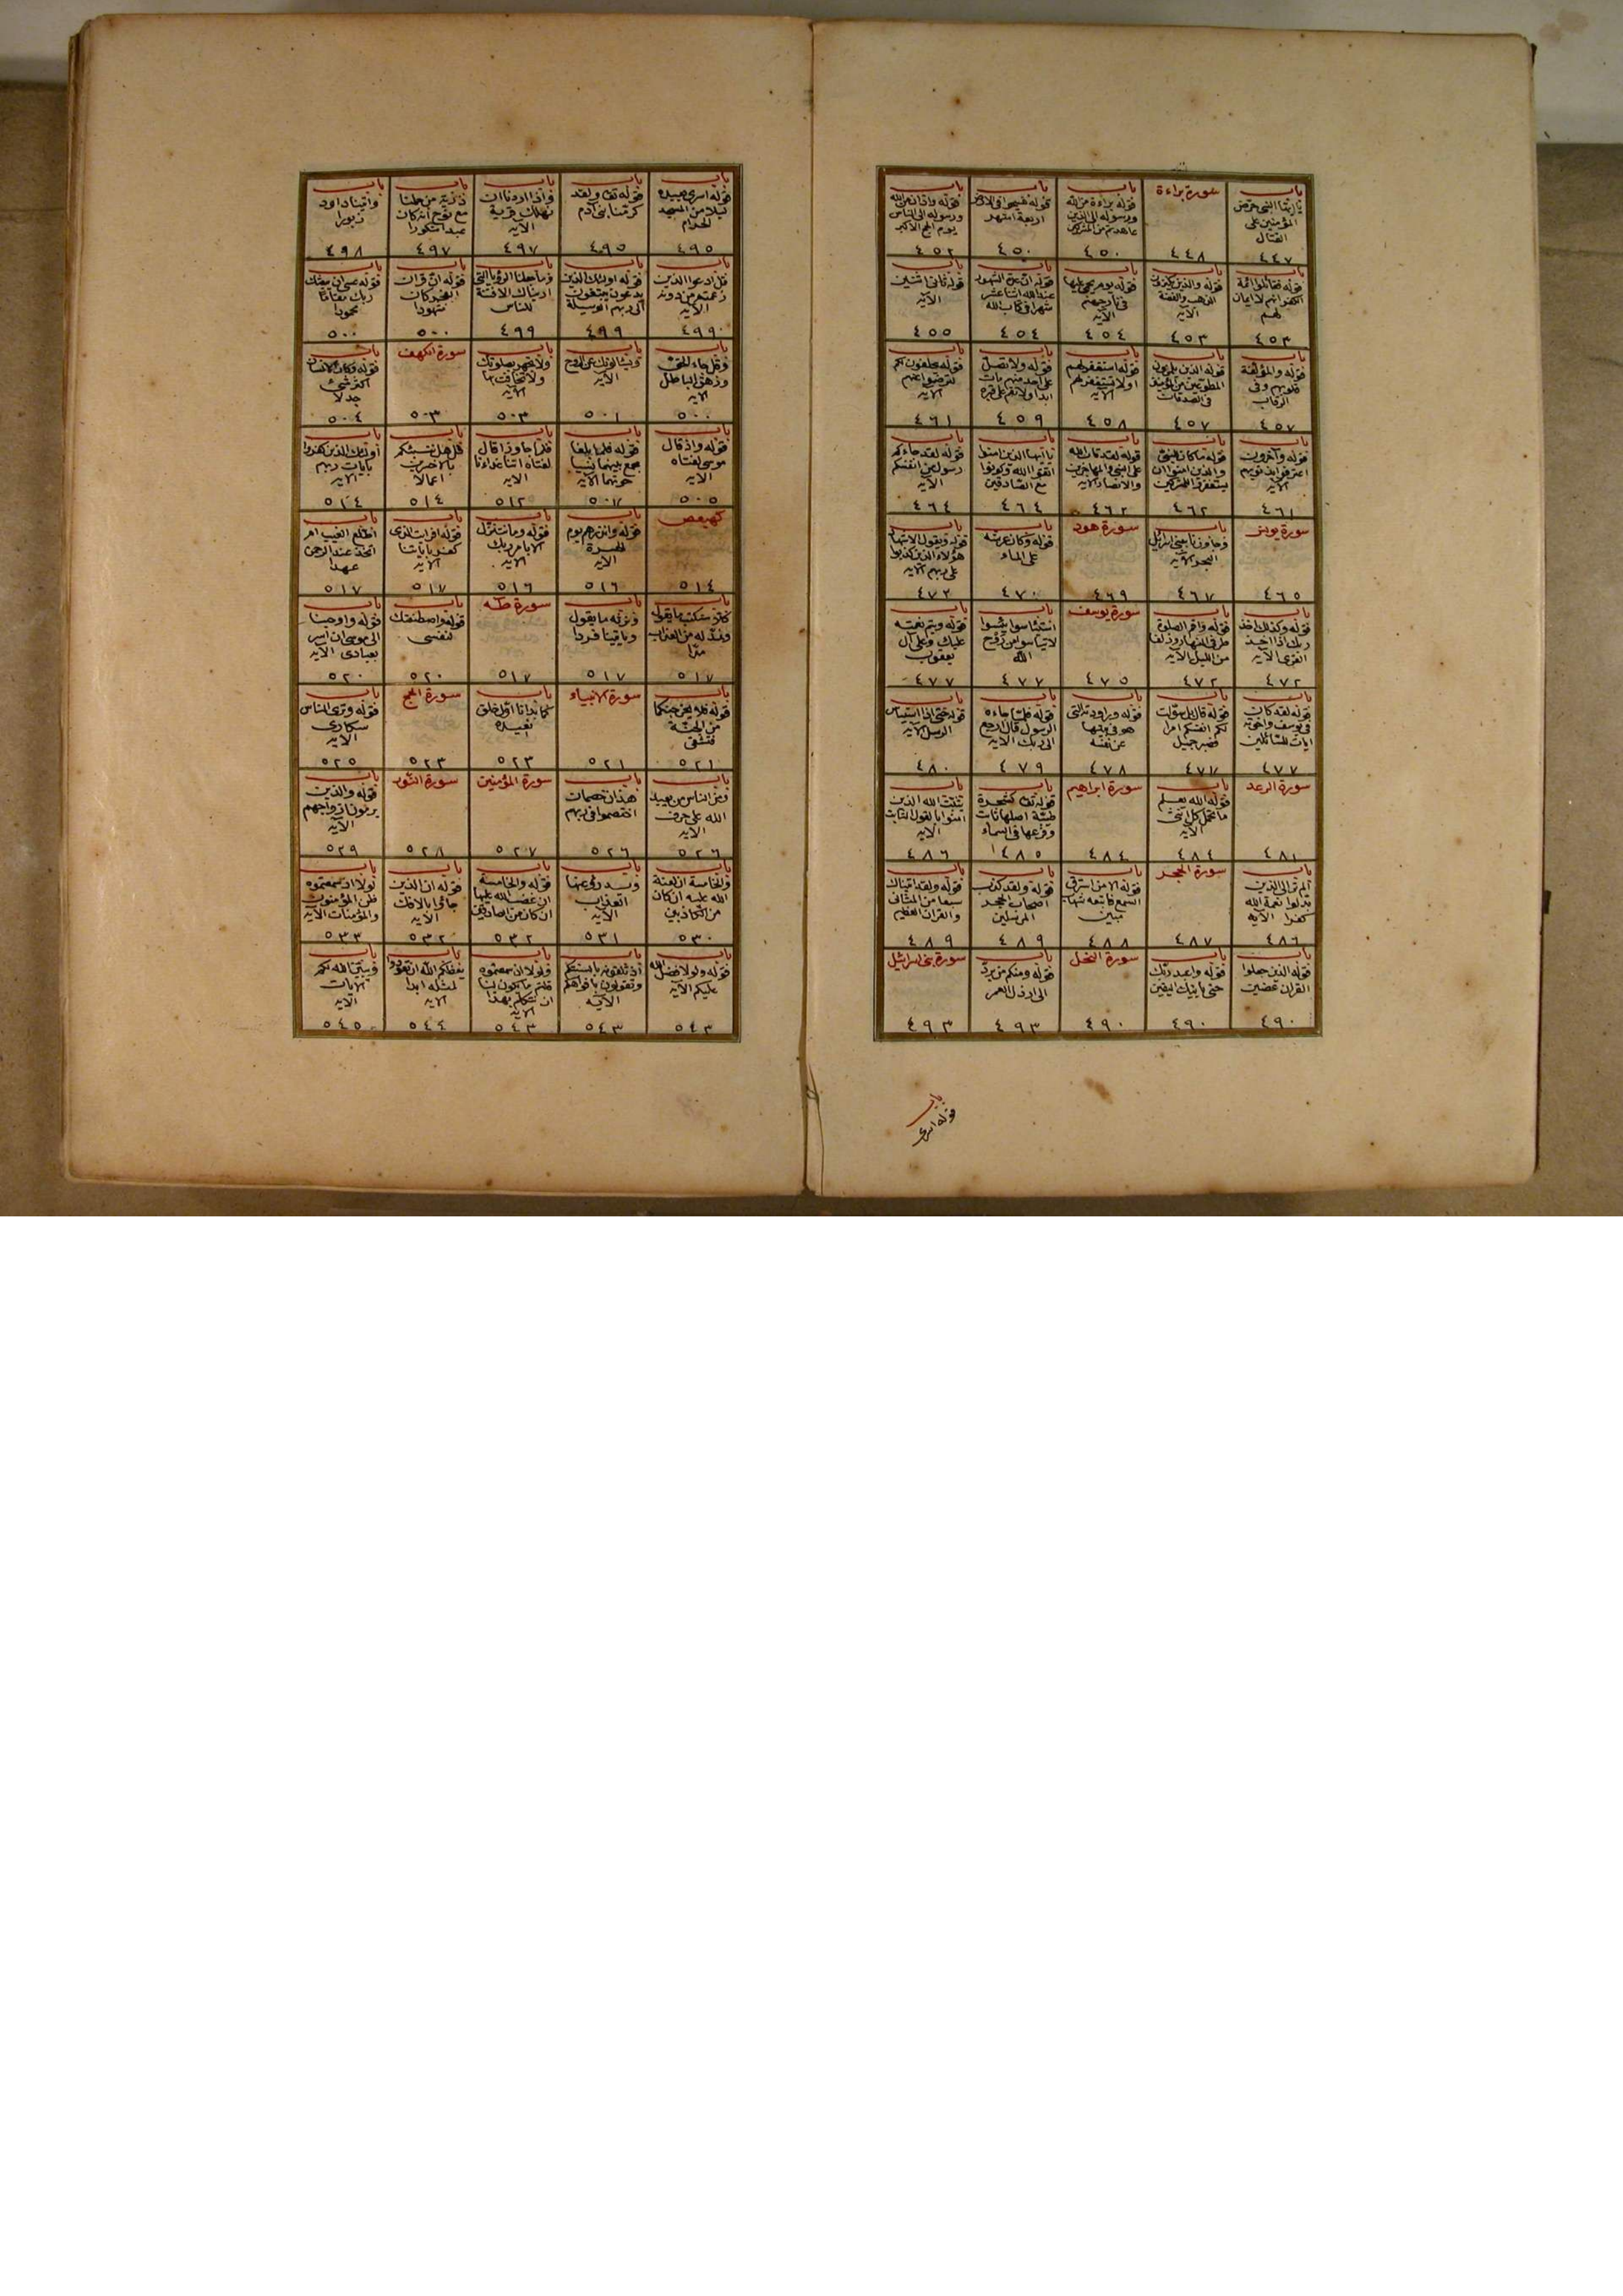 باب
يا ايها النبي حرض
المؤمنين على
القتال
٤٤٧
سورة براءة
٤٤٨
باب
قوله براءة من الله
ورسوله الى الذين
عاهدتم من المشركين
٤٥٠
باب
قوله فسيحوا في الارض
اربعة اشهر
٤٥٠
باب
قوله واذان من الله
ورسوله الى الناس
يوم الحج الاكبر
٤٥٢
باب
قوله فقاتلوا ائمة
الكفر انهم لا ايمان
لهم
٤٥٣
باب
قوله والذين يكنزون
الذهب والفضة
الآية
٤٥٣
باب
قوله يوم يحمى عليها
في نار جهنم
الآية
٤٥٤
باب
قوله ان عدة الشهور
عند الله اثنا عشر
شهرا في كتاب الله
٤٥٤
باب
قوله ثاني اثنين
الآية
٤٥٥
باب
قوله والمؤلفة
قلوبهم وفي
الرقاب
٤٥٧
باب
قوله الذين يلمزون
المطوعين من المؤمنين
في الصدقات
٤٥٧
باب
قوله استغفر لهم
او لا تستغفر لهم
الآية
٤٥٨
باب
قوله ولا تصل
على احد منهم مات
ابدا ولا تقم على قبره
٤٥٩
باب
قوله يحلفون لكم
لترضوا عنهم
الآية
٤٦١
باب
قوله وآخرون
اعترفوا بذنوبهم
الآية
٤٦١
باب
قوله ما كان للنبي
والذين امنوا ان
يستغفروا للمشركين
٤٦٢
باب
قوله لقد تاب الله
على النبي والمهاجرين
والانصار الآية
٤٦٢
باب
يا ايها الذين امنوا
اتقوا الله وكونوا
مع الصادقين
٤٦٤
باب
قوله لقد جاءكم
رسول من انفسكم
الآية
٤٦٤
سورة يونس
٤٦٥
باب
وجاوزنا ببني اسرائيل
البحر الآية
٤٦٧
سورة هود
٤٦٩
باب
قوله وكان عرشه
على الماء
٤٧٠
باب
قوله ويقول الاشهاد
هؤلاء الذين كذبوا
على ربهم الآية
٤٧٢
باب
قوله وكذلك اخذ
ربك اذا اخذ
القرى الآية
٤٧٢
باب
قوله واقم الصلوة
طرفي النهار وزلفا
من الليل الآية
٤٧٢
سورة يوسف
٤٧٥
باب
لا تيأسوا من روح
الله
٤٧٧
باب
قوله ويتم نعمته
عليك وعلى آل
يعقوب
٤٧٧
باب
قوله لقد كان
في يوسف واخوته
ايات للسائلين
٤٧٧
باب
قوله قال بل سولت
لكم انفسكم امرا
فصبر جميل
٤٧٧
باب
قوله وراودته التي
هو في بيتها
عن نفسه
٤٧٨
باب
قوله فلما جاءه
الرسول قال ارجع
الى ربك الآية
٤٧٩
باب
قوله حتى اذا استيأس
الرسل الآية
٤٨٠
سورة الرعد
٤٨١
باب
قوله الله يعلم
ما تحمل كل انثى
الآية
٤٨٤
سورة ابراهيم
٤٨٤
باب
قوله كشجرة
طيبة اصلها ثابت
وفرعها في السماء
٤٨٥
باب
يثبت الله الذين
امنوا بالقول الثابت
الآية
٤٨٦
باب
الم تر الى الذين
بدلوا نعمة الله
كفرا الآية
٤٨٦
سورة الحجر
٤٨٧
باب
قوله الا من استرق
السمع فاتبعه شهاب
مبين
٤٨٨
باب
قوله ولقد كذب
اصحاب الحجر
المرسلين
٤٨٩
باب
قوله ولقد اتيناك
سبعا من المثاني
والقران العظيم
٤٨٩
باب
قوله الذين جعلوا
القران عضين
٤٩٠
باب
قوله واعبد ربك
حتى ياتيك اليقين
٤٩٠
سورة النحل
٤٩٠
باب
قوله ومنكم من يرد
الى ارذل العمر
٤٩٣
سورة بني اسرائيل
٤٩٣
باب
قوله اسرى
باب
قوله اسرى بعبده
ليلا من المسجد
الحرام
٤٩٥
باب
قوله تعالى ولقد
كرمنا بني ادم
٤٩٥
باب
واذا اردنا ان
نهلك قرية
الآية
٤٩٧
باب
ذرية من حملنا
مع نوح انه كان
عبدا شكورا
٤٩٧
باب
واتينا داود
زبورا
٤٩٨
باب
قل ادعوا الذين
زعمتم من دونه
الآية
٤٩٩
باب
قوله اولئك الذين
يدعون يبتغون
الى ربهم الوسيلة
٤٩٩
باب
وما جعلنا الرؤيا التي
اريناك الا فتنة
للناس
٤٩٩
باب
قوله ان قران
الفجر كان
مشهودا
٥٠٠
باب
قوله عسى ان يبعثك
ربك مقاما
محمودا
٥٠٠
باب
وقل جاء الحق
وزهق الباطل
الآية
٥٠٠
باب
ويسالونك عن الروح
الآية
٥٠١
باب
ولا تجهر بصلوتك
ولا تخافت بها
الآية
٥٠٣
سورة الكهف
٥٠٣
باب
قوله وكان الانسان
اكثر شئ
جدلا
٥٠٤
باب
قوله واذ قال
موسى لفتاه
الآية
٥٠٥
باب
قوله فلما بلغا
مجمع بينهما نسيا
حوتهما الآية
٥٠٧
باب
فلما جاوزا قال
لفتاه اتنا غداءنا
الآية
٥١٢
باب
قل هل ننبئكم
بالاخسرين
اعمالا
٥١٤
باب
اولئك الذين كفروا
بايات ربهم
الآية
٥١٤
كهيعص
٥١٤
باب
قوله وانذرهم يوم
الحسرة
الآية
٥١٦
باب
قوله وما نتنزل
الا بامر ربك
الآية
٥١٦
باب
قوله افرايت الذي
كفر باياتنا
الآية
٥١٧
باب
اطلع الغيب ام
اتخذ عند الرحمن
عهدا
٥١٧
باب
كلا سنكتب ما يقول
ونمد له من العذاب
مدا
٥١٧
باب
ونرثه ما يقول
وياتينا فردا
٥١٧
سورة طه
٥١٧
باب
قوله واصطنعتك
لنفسي
٥٢٠
باب
قوله واوحينا
الى موسى ان اسر
بعبادي الآية
٥٢٠
باب
قوله فلا يخرجنكما
من الجنة
فتشقى
٥٢١
سورة الانبياء
٥٢١
باب
كما بدانا اول خلق
نعيده
٥٢٣
سورة الحج
٥٢٣
باب
قوله وترى الناس
سكارى
الآية
٥٢٥
باب
ومن الناس من يعبد
الله على حرف
الآية
٥٢٦
باب
هذان خصمان
اختصموا في ربهم
٥٢٦
سورة المؤمنين
٥٢٧
سورة النور
٥٢٨
باب
قوله والذين
يرمون ازواجهم
الآية
٥٢٩
باب
والخامسة ان لعنة
الله عليه ان كان
من الكاذبين
٥٣٠
باب
ويدرؤ عنها
العذاب
الآية
٥٣١
باب
قوله والخامسة
ان غضب الله عليها
ان كان من الصادقين
٥٣٢
باب
قوله ان الذين
جاؤا بالافك
الآية
٥٣٢
باب
لولا اذ سمعتموه
ظن المؤمنون
والمؤمنات الآية
٥٣٣
باب
قوله ولولا فضل الله
عليكم الآية
٥٤٣
باب
اذ تلقونه بالسنتكم
وتقولون بافواهكم
الآية
٥٤٣
باب
ولولا اذ سمعتموه
قلتم ما يكون لنا
ان نتكلم بهذا
الآية
٥٤٣
باب
يعظكم الله ان تعودوا
لمثله ابدا
الآية
٥٤٤
باب
ويبين الله لكم
الايات
الآية
٥٤٥